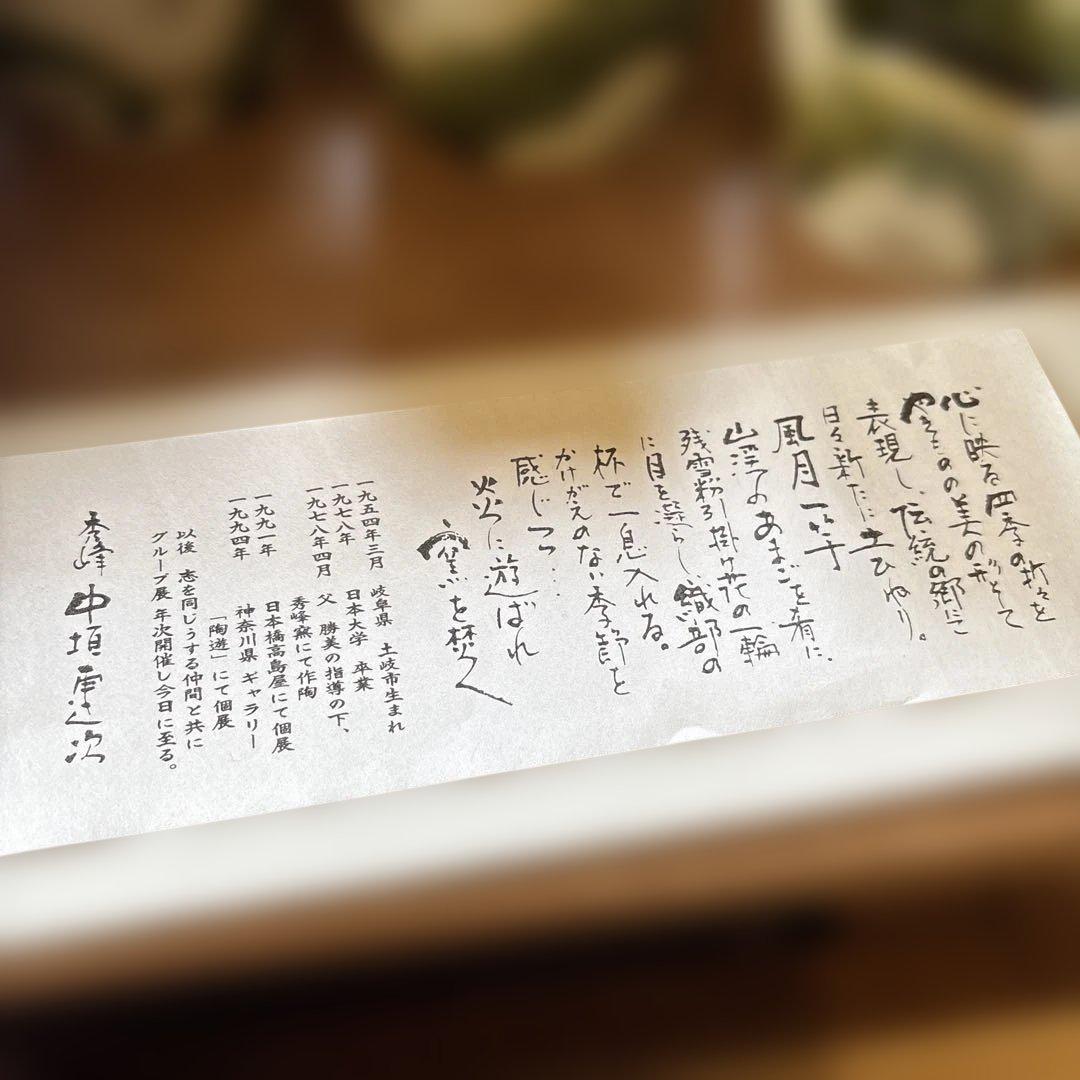 心に映る四季の折々を
やきものの美の形として
表現し、伝統の郷にて
日々新たに土ひねり。
風月一竿
山渓でのあまごを肴に、
残雪粉ろ掛け花の一輪
に目を凝らし、織部の
杯で一息入れる。
かけがえのない季節を
感じつつ…
炎に遊ばれ
窯を焚く
一九五四年三月 岐阜県 土岐市生まれ
一九七八年 日本大学 卒業
一九七八年四月 父 勝美の指導の下、
秀峰窯にて作陶
一九九一年 日本橋高島屋にて個展
一九九四年 神奈川県 ギャラリー
「陶遊」にて個展
以後 志を同じうする仲間と共に
グループ展 年次開催し今日に至る。
秀峰 中垣 次